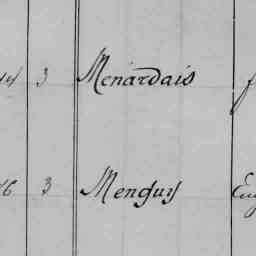 14 3 Menardais f
16 3 Menguy Eug